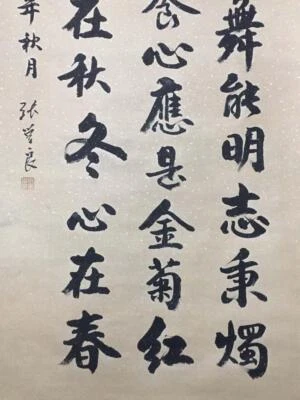 舞能明志秉燭
食心應是金菊紅
在秋冬心在春
年秋月 張學良